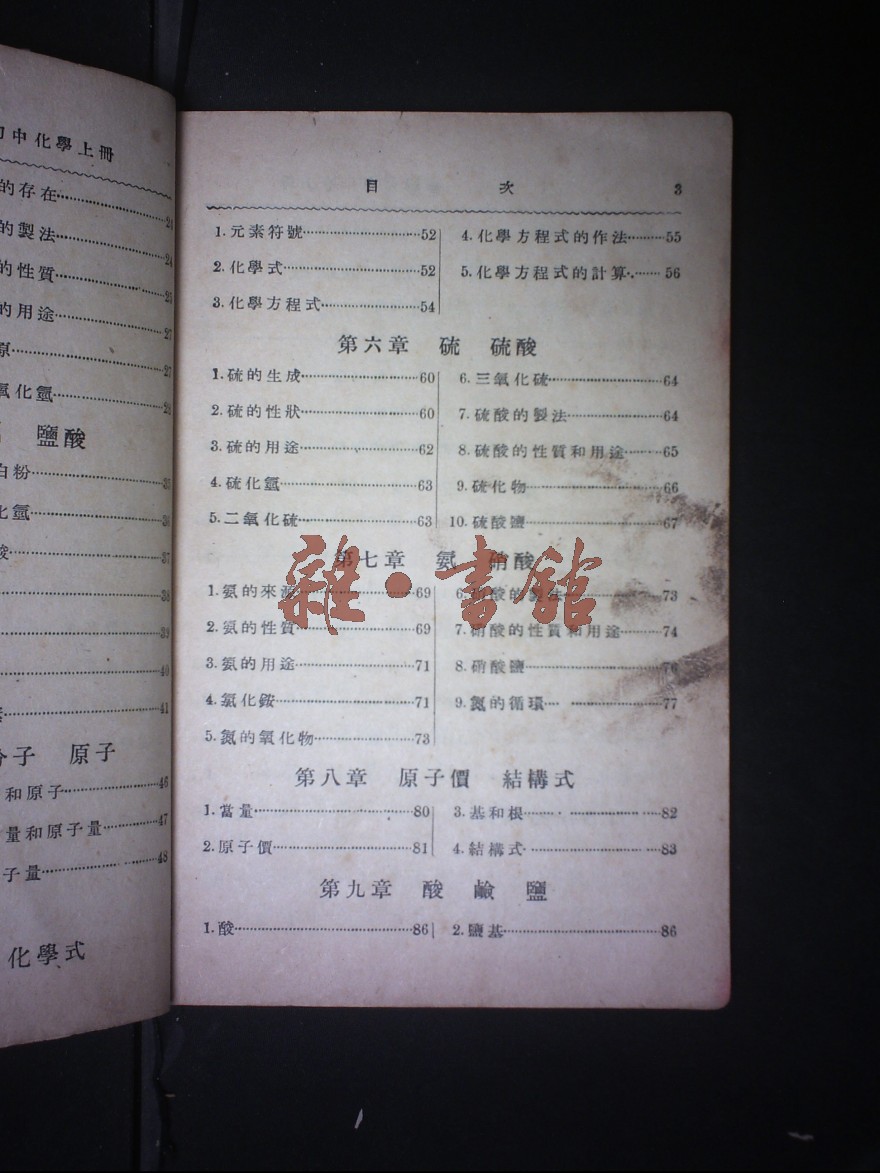 初中化學上冊
的存在……24
的製法……24
的性質……25
的用途……27
原……27
氧化氫……28
鹽酸
白粉……35
化氫……36
酸……37
……38
……39
……40
……41
分子 原子
和原子……46
量和原子量……47
子量……48
化學式
目 次 3
1.元素符號……52
2.化學式……52
3.化學方程式……54
4.化學方程式的作法……55
5.化學方程式的計算……56
第六章 硫 硫酸
1.硫的生成……60
2.硫的性狀……60
3.硫的用途……62
4.硫化氫……63
5.二氧化硫……63
6.三氧化硫……64
7.硫酸的製法……64
8.硫酸的性質和用途……65
9.硫化物……66
10.硫酸鹽……67
第七章 氨 硝酸
1.氨的來源……69
2.氨的性質……69
3.氨的用途……71
4.氯化銨……71
5.氮的氧化物……73
6.硝酸的製法……73
7.硝酸的性質和用途……74
8.硝酸鹽……76
9.氮的循環……77
雜·書館
第八章 原子價 結構式
1.當量……80
2.原子價……81
3.基和根……82
4.結構式……83
第九章 酸 鹼 鹽
1.酸……86
2.鹽基……86